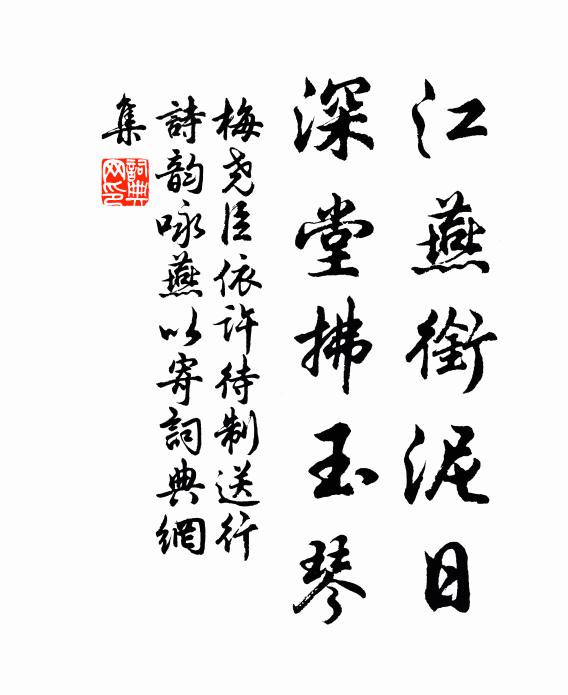 江燕銜泥日
深堂拂玉琴
梅尧臣依許待制送行
詩韵咏燕以寄詞典網
集
詞典网印